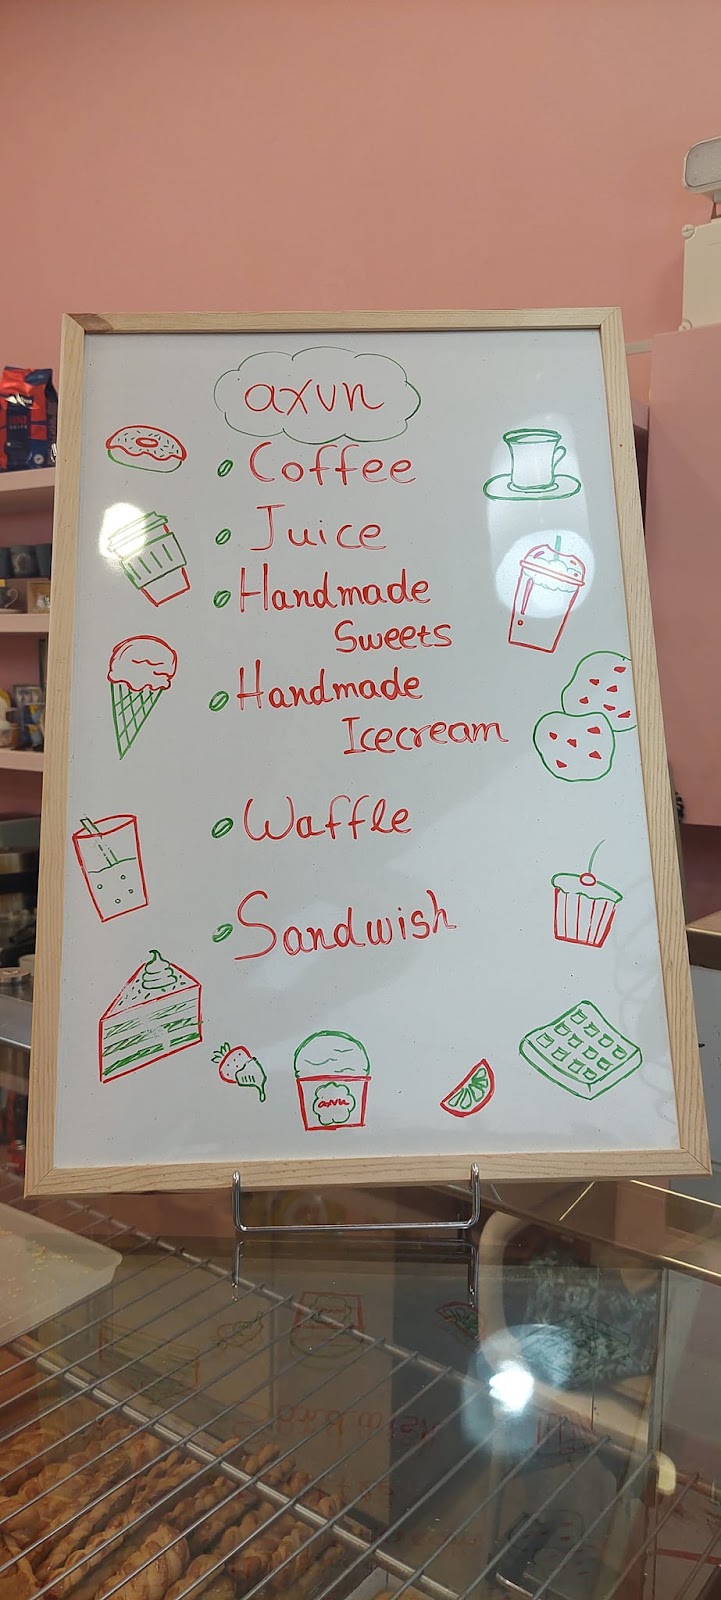 αχνη
Coffee
Juice
Handmade
Sweets
Handmade
Icecream
Waffle
Sandwish
αχνη